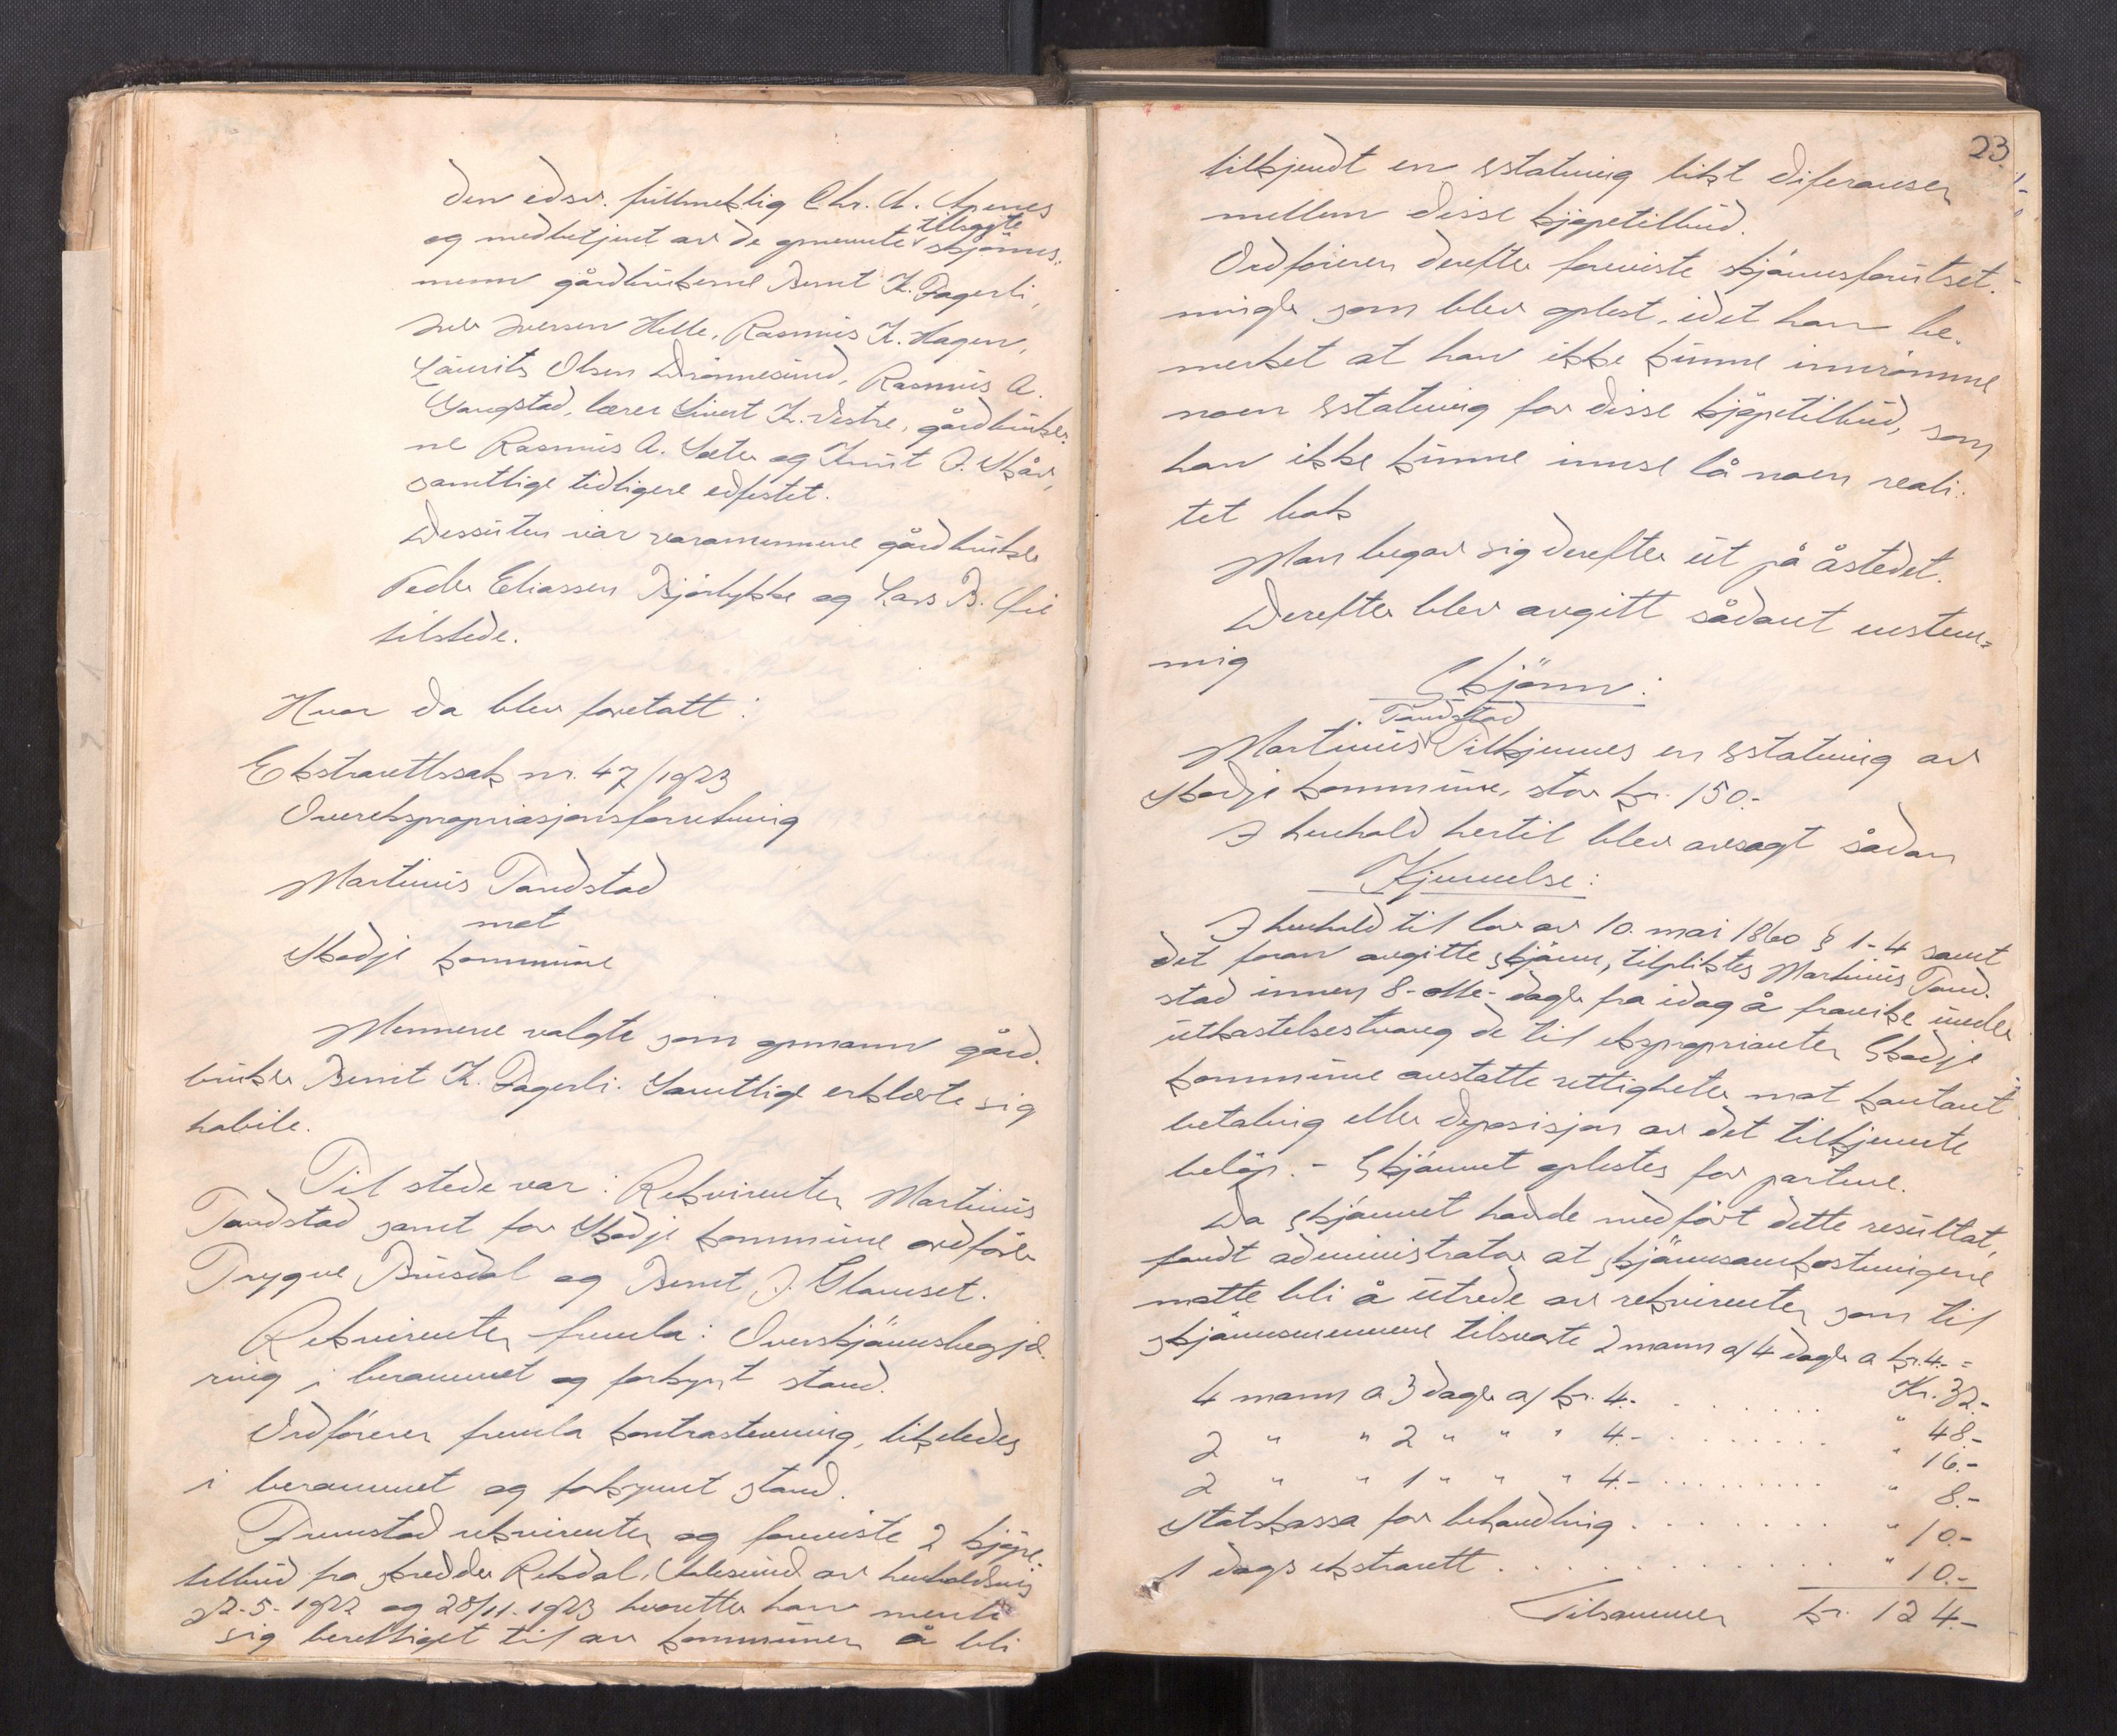 den edsv. fullmektig Chr. A. Aarnes
og medbetjent av de opnevnte tilsagte skjønns-
menn gårdbrukerne Bernt K. Fagerli,
Iver Iversen Helle, Rasmus K. Hagen,
Laurits Olsen Drønnesund, Rasmus A.
Vangstad, lærer Sivert K. Vestre, gårdbruker-
ne Rasmus A. Sæter og Knut J. Skår,
samtlige tidligere edfestet.
Dessuten var varamennene gårdbruker
Peder Eliassen Bjørlykke og Lars B.
tilstede.
Hvor da blev foretatt:
Ekstrarettssak nr. 47/1923
Overekspropriasjonsforretning
Martinus Tandstad
mot
Skodje kommune
Mennene valgte som opmann gård-
bruker Bernt K. Fagerli. Samtlige erklærte sig
habile.
Til stede var: Rekvirenten Martinus
Tandstad samt for Skodje kommune ordfører
Trygve Brusdal og Bernt J. Glamset.
Rekvirenten fremla: Overskjønnsbegjæ-
ring i berammet og forkynt stand.
Ordføreren fremla kontrastevning, likeledes
i berammet og forkynnt stand.
Fremstod rekvirenten og foreviste 2 kjøpe-
tilbud fra skredder Rekdal, Ålesund av henholdsvis
22-5-1922 og 28/11-1923 hvoretter han mente
sig berettiget til av kommunen å bli
23
tilkjendt en erstatning likt diferansen
mellem disse kjøpetilbud.
Ordføreren derefter foreviste skjønnsforutset-
ninger som blev oplest, idet han be-
merket at han ikke kunne innrømme
noen erstatning for disse kjøpetilbud, som
han ikke kunne innse lå noen reali-
tet bak
Man begav sig derefter ut på åstedet.
Derefter blev avgitt sådant enstem-
mig
Skjønn:
Martinus Tandstad tilkjennes en erstatning av
Skodje kommune, stor kr. 150.-
I henhold hertil blev avsagt sådan
Kjennelse:
I henhold til lov av 10. mai 1860 § 1-4 samt
det foran avgitte skjønn, tilpliktes Martinus Tand-
stad innen 8-otte- dager fra idag å fravike under
utkastelsestvang de til ekspropriantens Skodje
kommune avståtte rettigheter mot kontant
betaling eller deposisjon av det tilkjennte
beløp. - Skjønnet oplestes for partene.
Da skjønnet hadde medført dette resultat,
fandt administrator at skjønnsomkostningene
måtte bli å utrede av rekvirenten som til
skjønnsmennene tilsvarte 2 mann a/ 4 dager a kr. 4.- =
Kr. 32.-
4 mann a 3 dager a/ kr. 4.- . . . . . . " 48.-
2 " " 2 " " " 4.- . . . . . . . . " 16.-
2 " " 1 " " " 4.- . . . . . . . . . " 8.-
Statskassa for behandling . . . . . . . . " 10.-
1 dags ekstrarett . . . . . . . . . . . . " 10.-
Tilsammen kr. 124.-